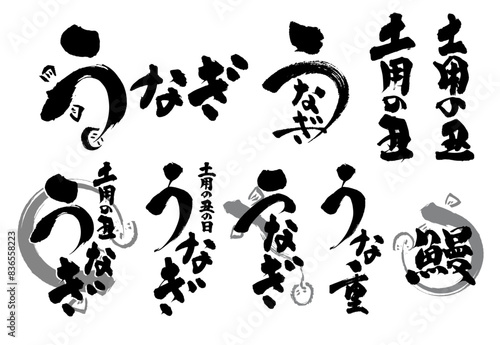 うなぎ
うなぎ
土用の丑
土用の丑
土用の丑の日
うなぎ
土用の丑の日
うなぎ
うなぎ
うな重
鰻
Adobe Stock | #836558223